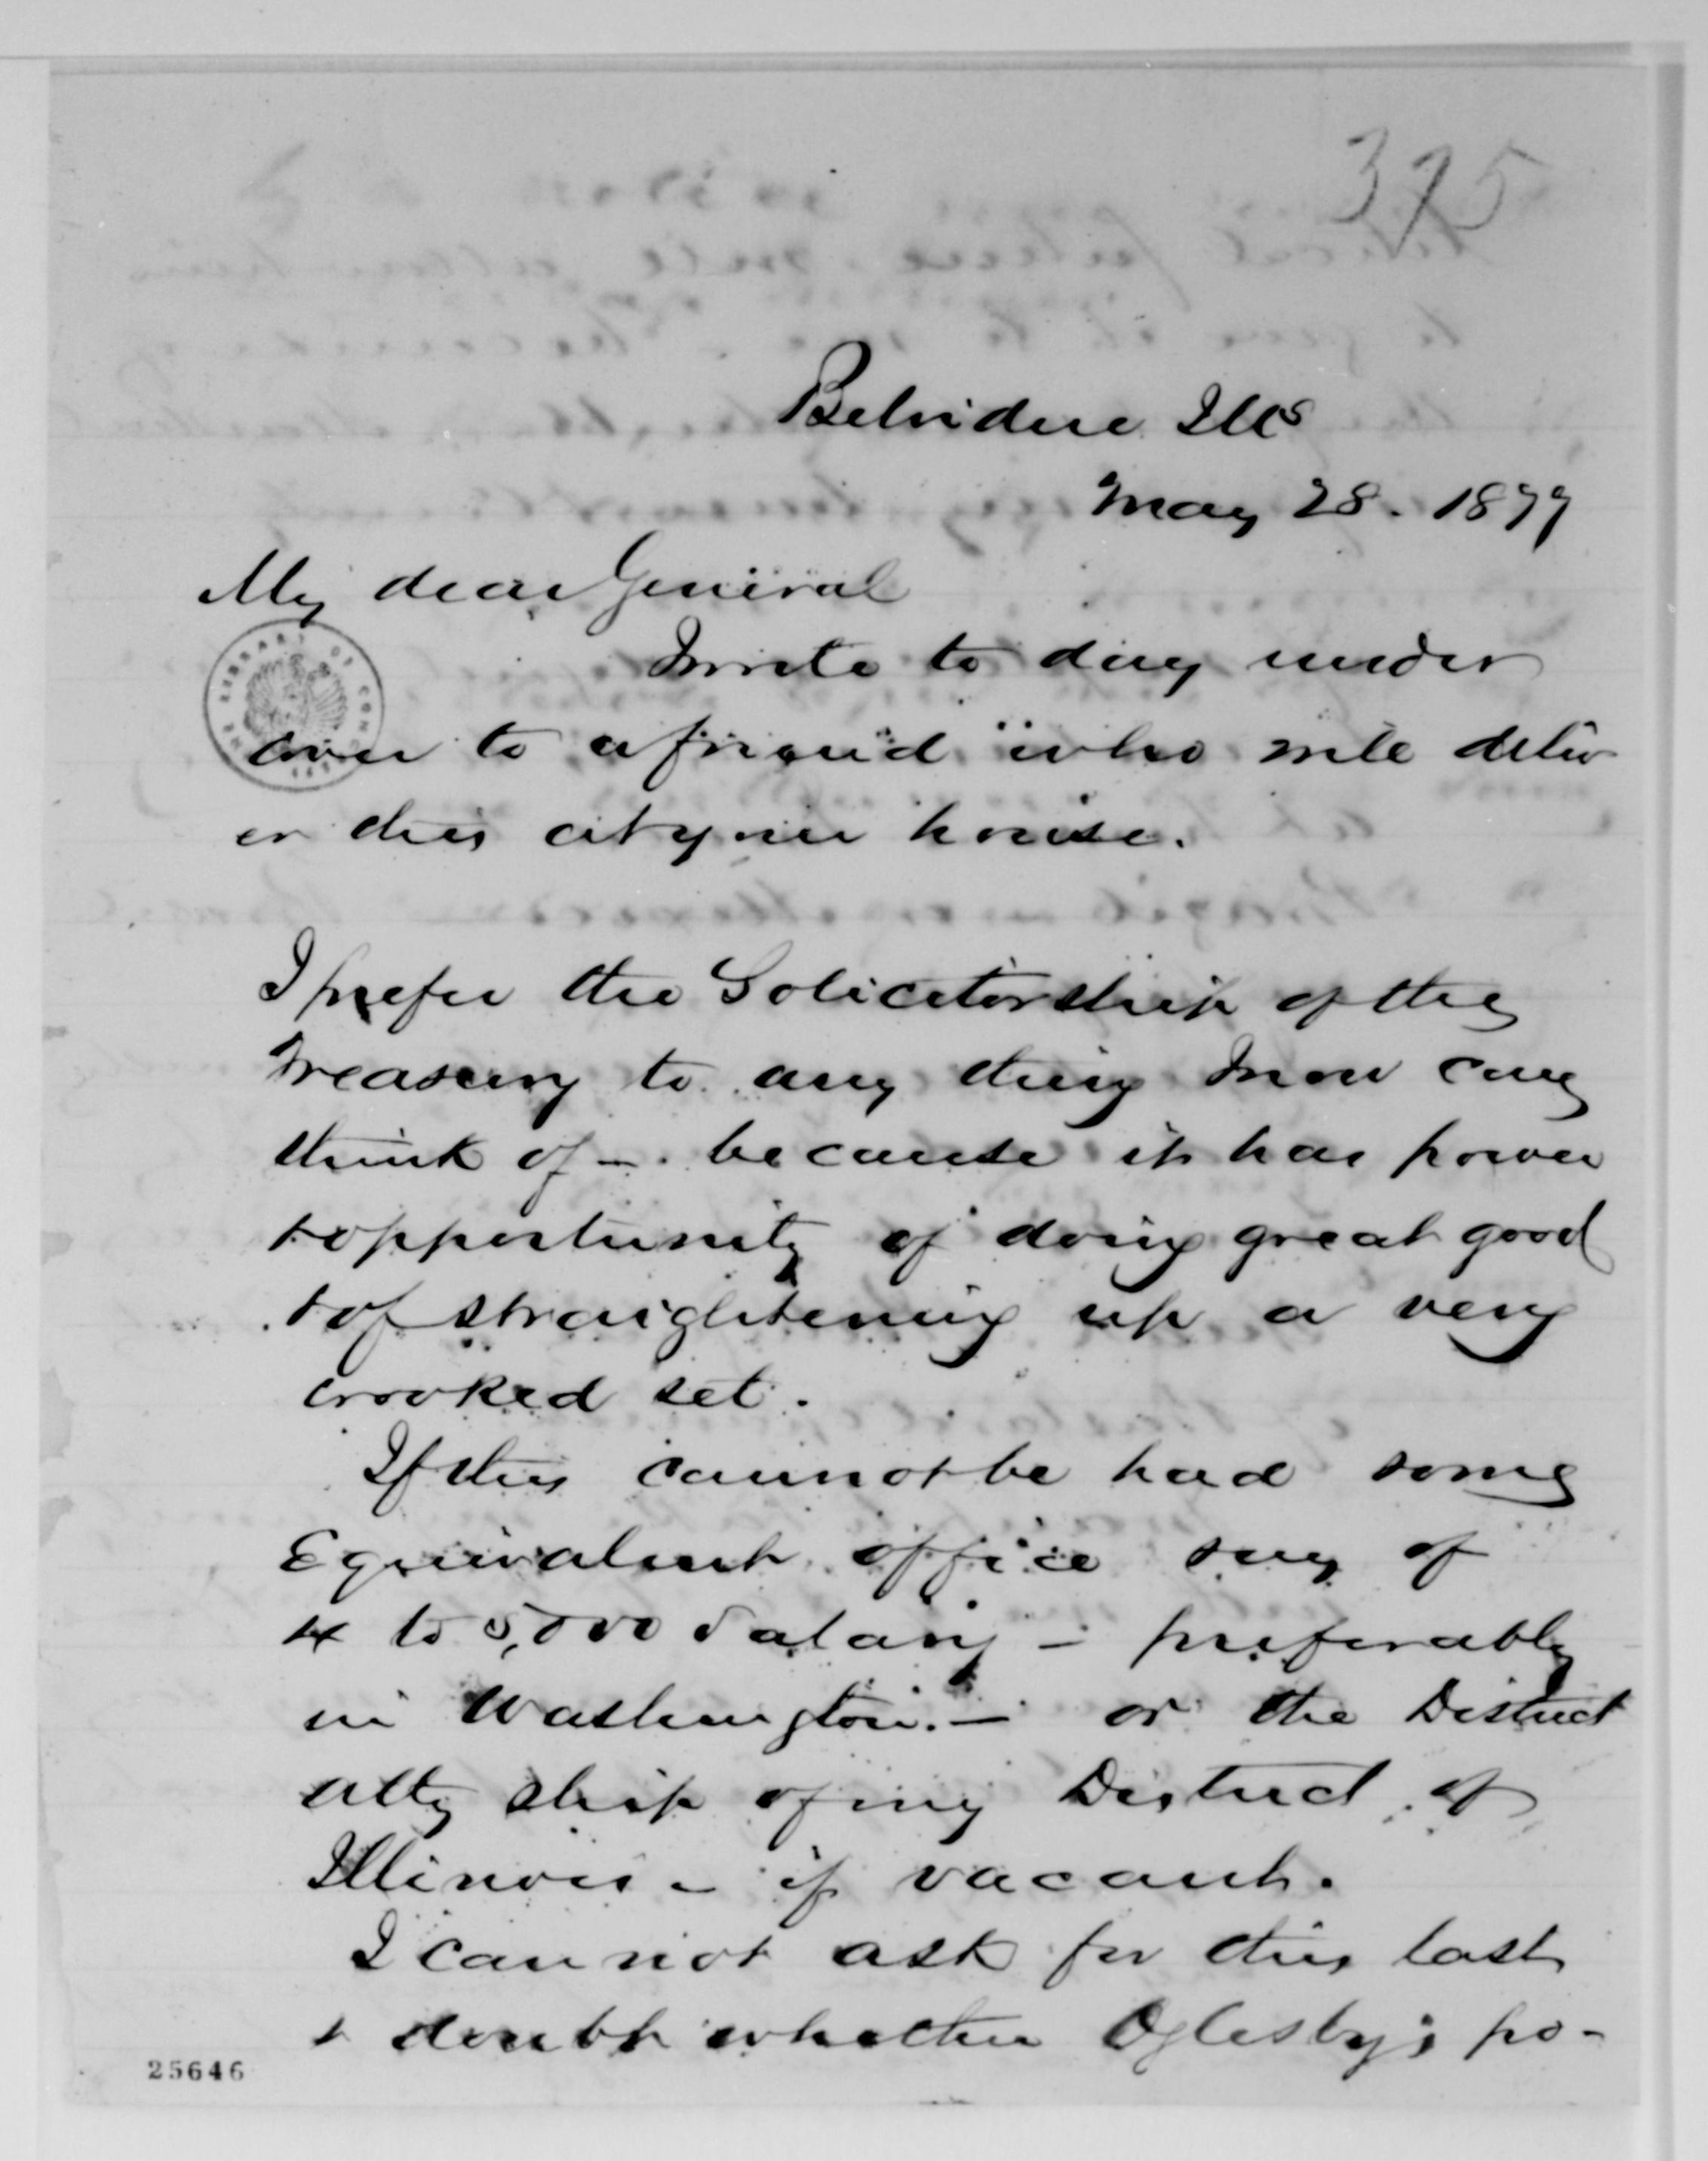 395
Belvidere Ills
May 28. 1877
My dear General
I write to day under
cover to a friend who will deliv
er this at your house.
I prefer the Solicitorship of the
Treasury to any thing I now can
think of - because it has power
& opportunity of doing great good
& of straightening up a very
crooked set.
If this cannot be had some
Equivalent office say of
4 to 5,000 Salary - preferably
in Washington. - or the District
atty ship of my District of
Illinois - if vacant.
I can not ask for this last
& doubt whether Oglesby's po-
THE LIBRARY OF CONGRESS
25646